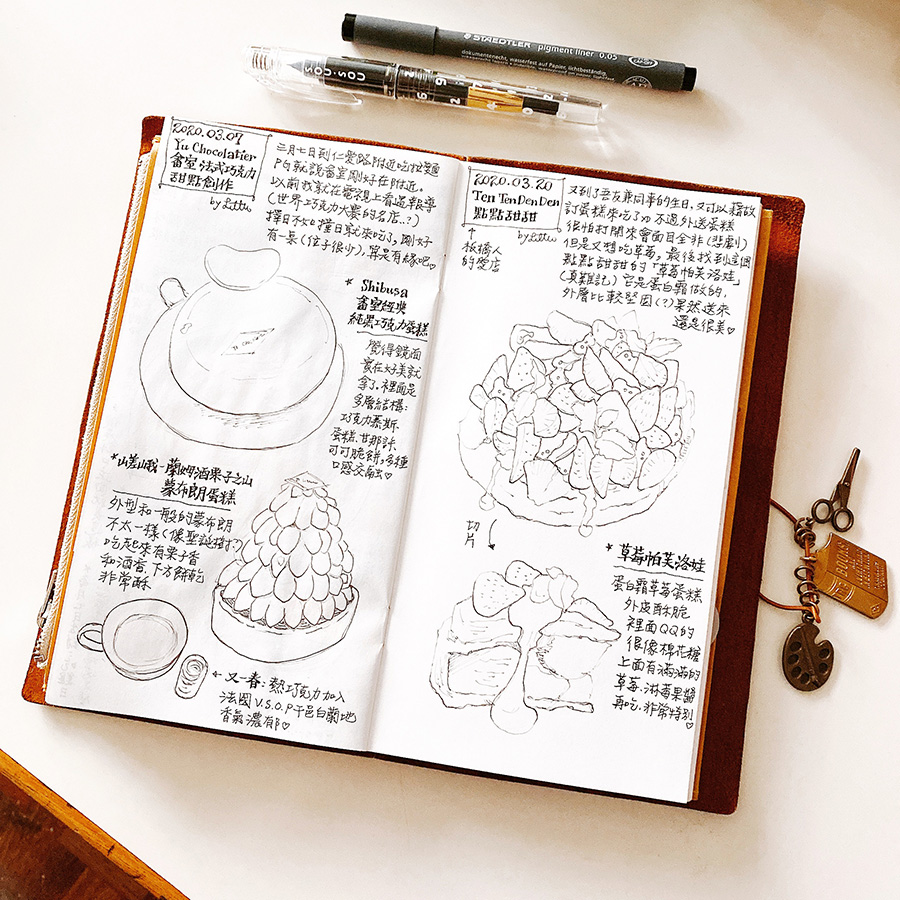 STAEDTLER pigment liner 0.05
dokumentenecht, wasserfest auf Papier, lichtbeständig,
SOU・SOU
2020.03.07
Yu Chocolatier
畬室 法式巧克力
甜點創作
by Littlu
三月七日到仁愛路附近吃拉麵
PG就說畬室剛好在附近。
以前我就在電視上看過報導
(世界巧克力大賽的名店..?)
擇日不如撞日就來吃了,剛好
有一桌(位子很少),算是有緣吧♡
* Shibusa
畬室經典
純黑巧克力蛋糕
覺得鏡面
實在好美就
拿了.裡面是
多層結構:
巧克力慕斯.
蛋糕.甘那許.
可可脆餅,多種
口感交融♡
*山差山我-蘭姆酒栗子之山
蒙布朗蛋糕
外型和一般的蒙布朗
不太一樣(像聖誕樹?)
吃起來有栗子香
和酒香.下方餅乾
非常酥
← 又一春:熱巧克力加入
法國V.S.O.P干邑白蘭地
香氣濃郁♡
2020.03.20
Ten Ten Den Den
點點甜甜
by Littlu
↑
板橋人
的愛店
又到了吾友兼同事的生日,又可以藉故
訂蛋糕來吃了 不過外送蛋糕
很怕打開來會面目全非(悲劇)
但是又想吃草莓,最後找到這個
點點甜甜的「草莓帕芙洛娃」
(真難記)它是蛋白霜做的,
外層比較堅固(?)果然送來
還是很美♡
切片
* 草莓帕芙洛娃
蛋白霜草莓蛋糕
外皮酥脆
裡面QQ的
很像棉花糖
上面有滿滿的
草莓.淋莓果醬
再吃.非常特別
♡
BOOKS